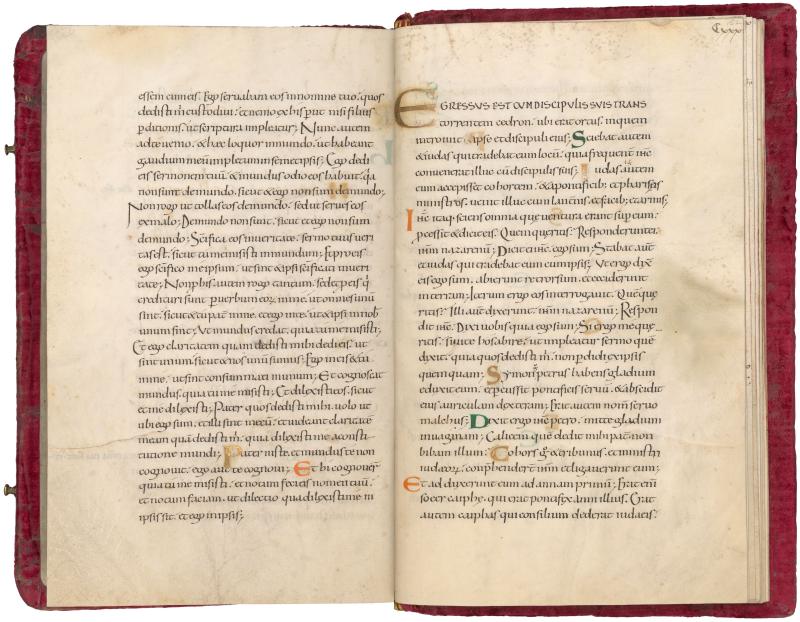 essem cum eis. Ego seruabam eos innomine tuo. quos
dedisti m̄ custodiui. et nemo exhis p̄iit nisi filius
p̄ditionis. ut scriptura impleatur; Nunc autem
adte uenio. et hęc loquor inmundo. ut habeant
gaudium meū impletum insemetipsis; Ego dedi
eis sermonem tuū. et mundus odio eos habuit. q̄a
non sunt demundo. sicut et ego non sum demundo;
Non rogo ut tollas eos demundo. sed ut serues eos
exmalo; Demundo non sunt. sicut et ego non sum
demundo; Sc̄ifica eos inueritate. sermo tuus ueri
tas est. sicut tu me misisti inmundum; Et pro eis
ego sc̄ifico me ipsum. ut sint et ipsi sc̄ificati inueri
tate; Non p̄ his autem rogo tantum. sed et p̄ eis q̄
credituri sunt p̄ uerbum eoꝝ inme. ut omnes unū
sint. sicut tu pat̄ inme. et ego inte. ut et ipsi innob̄
unum sint; Ut mundus credat. quia tu me misisti;
Et ego claritatem quam dedisti mihi dedi eis. ut
sint unum. sicut et nos unū sumus; Ego ineis et tu
inme. ut sint consummati inunum; Et cognoscat
mundus. quia tu me misisti; Et dilexisti eos. sicut
et me dilexisti; Pater quos dedisti mihi. uolo ut
ubi ego sum. et illi sint mecū. ut uideant claritatē
meam quā dedisti m̄. quia dilexisti me aconsti
tutione mundi; Pater iuste. et mundus te non
cognouit. ego aut̄ te cognoui; Et hi cognouer̄
quia tu me misisti. et notum feci eis nomen tuū.
et notum faciam. ut dilectio qua dilexisti me in
ipsis sit. et ego inipsis;
Cxxx
EGRESSUS EST CUM DISCIPULIS SUIS TRANS
torrentem cedron. ubi erat ortus. inquem
introiuit ipse et discipuli eius; Sciebat autem
et iudas qui tradebat eum locū. quia frequent̄ ihc̄
conuenerat illuc cū discipulis suis; Iudas autem
cum accepisset cohortem. et apontificib; et pharisęis
ministros. uenit illuc cum lanternis. et facib; et armis;
Ihc̄ itaq; sciens omnia quę uentura erant sup̄ eum.
p̄cessit. et dicit eis. Quem queritis; Responder̄ ei.
ihm̄ nazarenū; Dicit ihc̄. ego sum; Stabat aut̄
et iudas qui tradebat eum cum ipsis; Ut ergo dix̄
eis ego sum. abierunt retrorsum. et ceciderunt
interram; Iterum ergo eos interrogauit. Quē quę
ritis; Illi aut̄ dixerunt. ihm̄ nazarenū; Respon
dit ihc̄. Dixi uobis quia ego sum; Si ergo me quę
ritis. sinite hos abire. ut impleatur sermo quē
dixit. quia quos dedisti m̄. non p̄didi exipsis
quemquam; Symon petrus habens gladium
eduxit eum. et percussit pontificis seruū. et abscidit
eius auriculam dexteram; Erat autem nom̄ seruo
malchus; Dixit ergo ihc̄ petro. mitte gladium
inuaginam; Calicem quē dedit mihi pat̄. non
bibam illum; Cohors g̊ et tribunus. et ministri
iudęoꝝ. comp̄henderunt ihm̄ et ligauerunt eum;
Et adduxerunt eum ad annam primū; Erat eni̅
socer caiphę. qui erat pontifex anni illius. Erat
autem caiphas qui consilium dederat iudaeis.